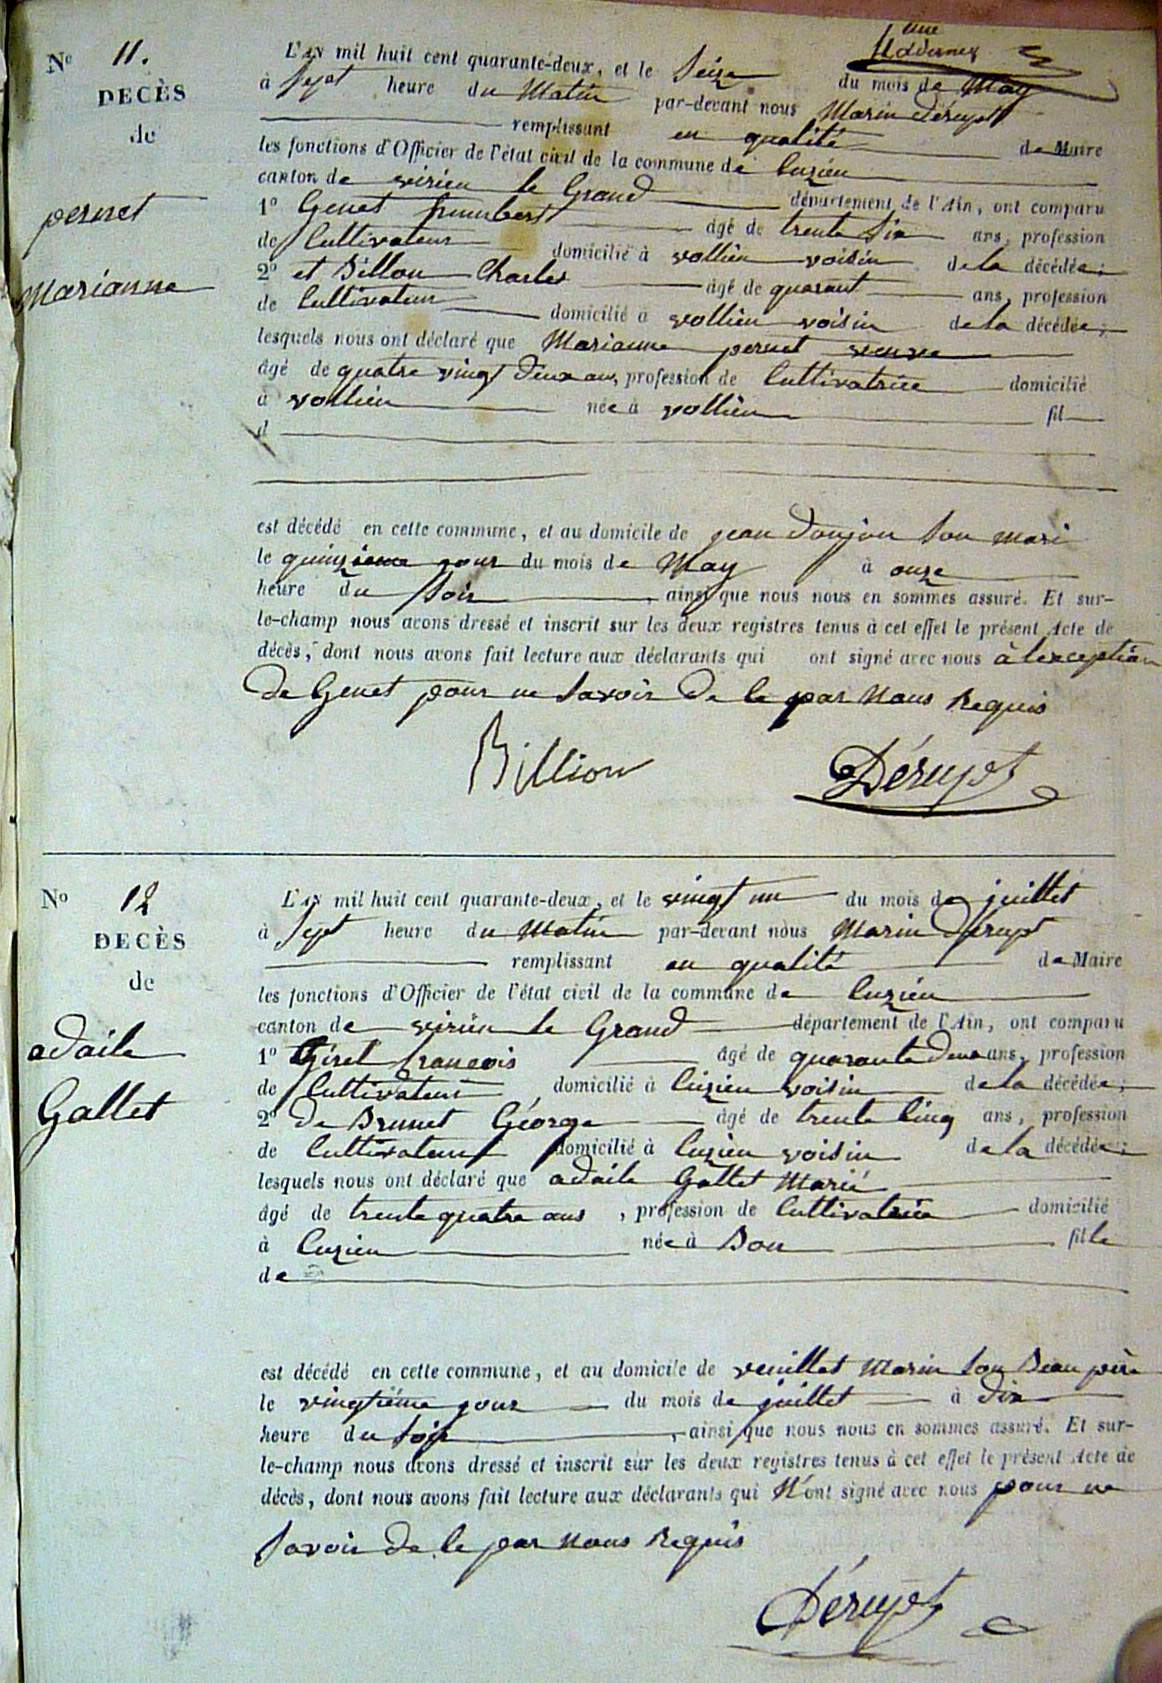 N° 11.
DECÈS
de
pernet
Marianne
L'AN mil huit cent quarante-deux, et le Seize du mois de May
à Sept heure du Matin par-devant nous Marin Déruget
remplissant en qualité de Maire
les fonctions d'Officier de l'état civil de la commune de Cuzieu
canton de virieu le Grand département de l'Ain, ont comparu
1° Genet humbert âgé de trente Six ans, profession
de Cultivateur domicilié à vollien voisin de la décédée;
2° et Billon Charles âgé de quarant ans, profession
de Cultivateur domicilié à vollien voisin de la décédée;
lesquels nous ont déclaré que Marianne pernet veuve
âgé de quatre vingt deux ans, profession de Cultivatrice domicilié
à vollien née à vollien fil
d
est décédé en cette commune, et au domicile de jean donjon Son mari
le quinzieme jour du mois de May à onze
heure du Soir, ainsi que nous nous en sommes assuré. Et sur-
le-champ nous avons dressé et inscrit sur les deux registres tenus à cet effet le présent Acte de
décès, dont nous avons fait lecture aux déclarants qui ont signé avec nous à lexception
de Genet pour ne Savoir de le par Nous Requis
Billion Déruget
N° 12
DECÈS
de
adaile
Gallet
L'AN mil huit cent quarante-deux, et le vingt un du mois de juillet
à Sept heure du Matin par-devant nous Marin Déruget
remplissant en qualité de Maire
les fonctions d'Officier de l'état civil de la commune de Cuzieu
canton de virieu le Grand département de l'Ain, ont comparu
1° Girel francois âgé de quarante deux ans, profession
de Cultivateur domicilié à Cuzieu voisin de la décédée;
2° de Brunet George âgé de trente Cinq ans, profession
de Cultivateur domicilié à Cuzieu voisin de la décédée;
lesquels nous ont déclaré que adaile Gallet Marié
âgé de trente quatre ans, profession de Cultivatrice domicilié
à Cuzieu née à Don fille
de
est décédé en cette commune, et au domicile de veuillet Marin Son Beau père
le vingtième jour du mois de juillet à dix
heure du Soir, ainsi que nous nous en sommes assuré. Et sur-
le-champ nous avons dressé et inscrit sur les deux registres tenus à cet effet le présent Acte de
décès, dont nous avons fait lecture aux déclarants qui N'ont signé avec nous pour ne
Savoir de le par Nous Requis
Déruget